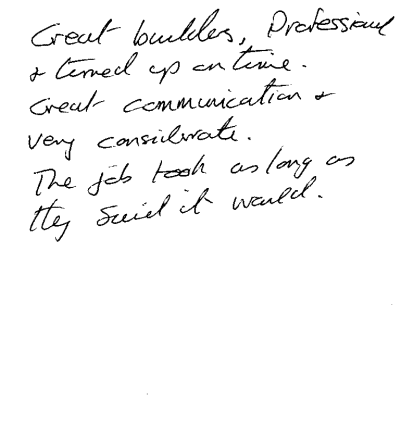 Great builders, Professional
& turned up on time.
Great communication &
very considerate.
The job took as long as
they said it would.